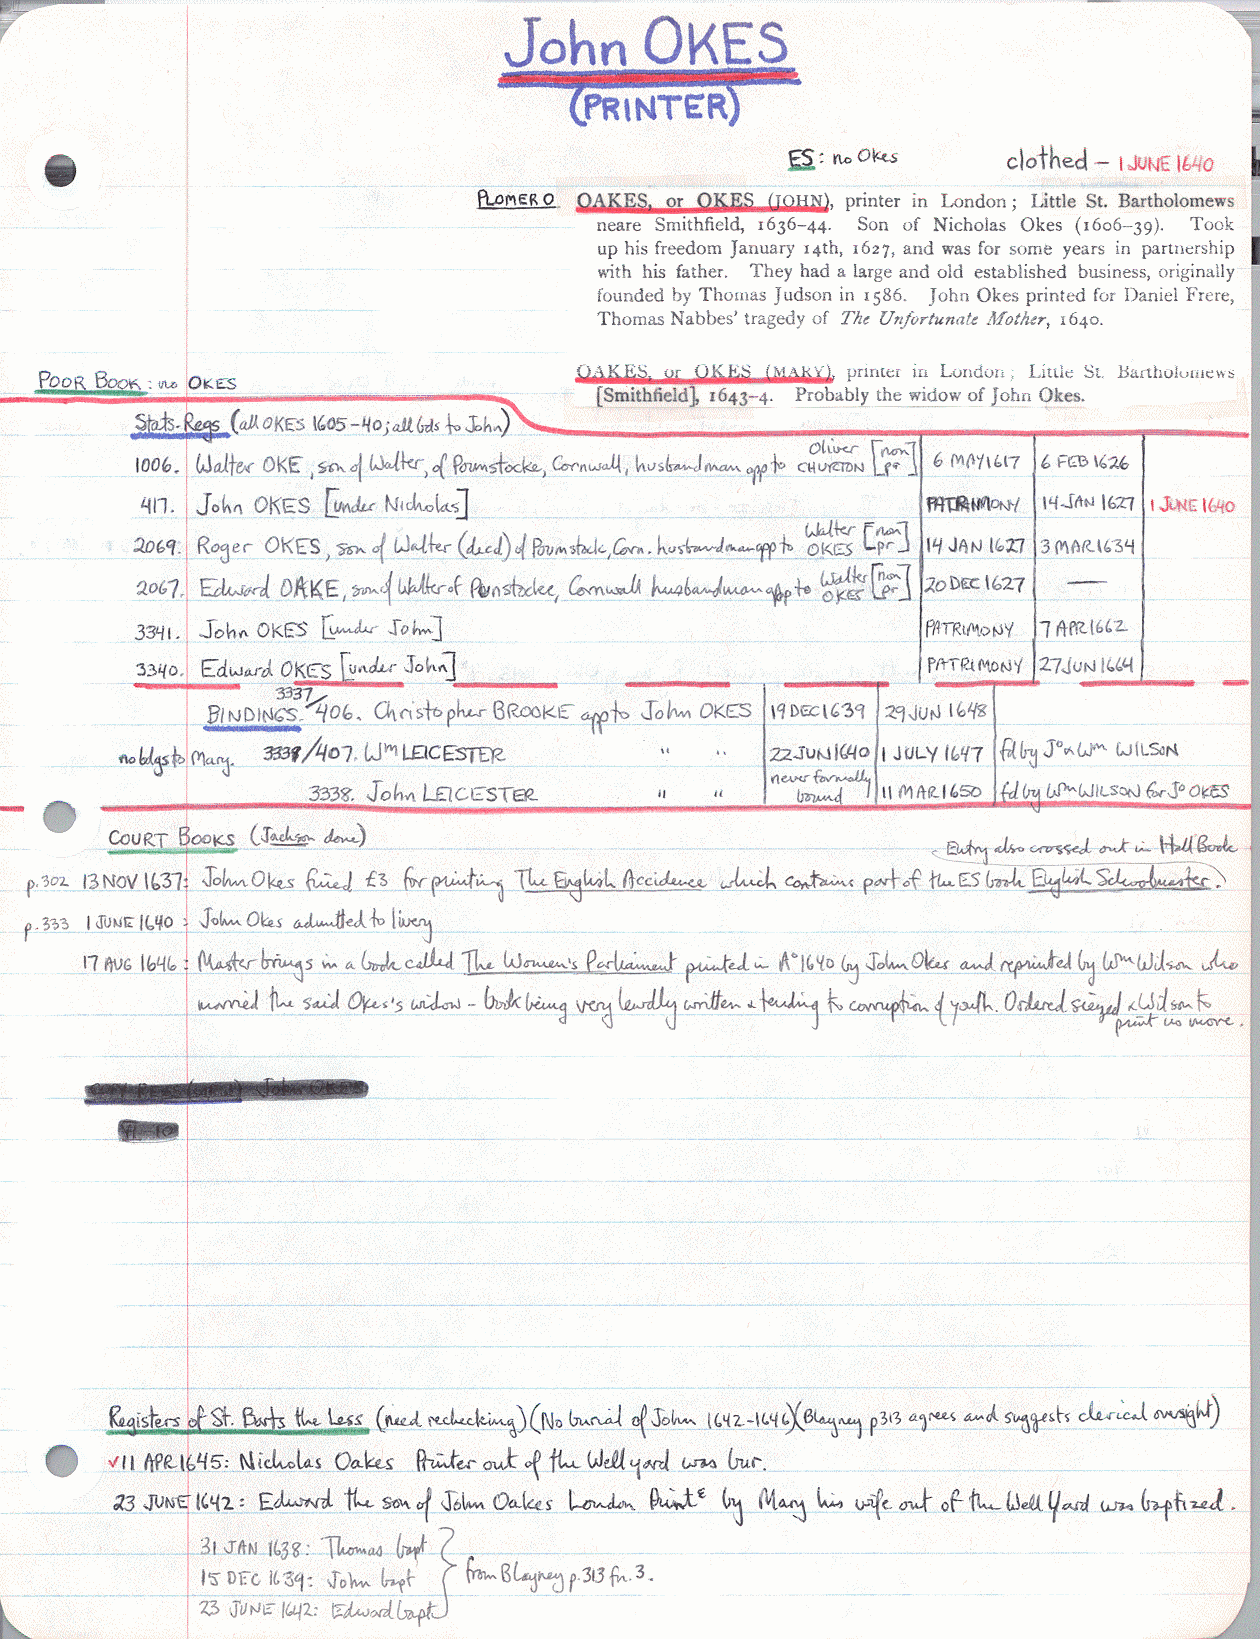 John OKES
(PRINTER)
ES: no Okes
clothed – 1 JUNE 1640
PLOMER O
OAKES, or OKES (JOHN), printer in London; Little St. Bartholomews
neare Smithfield, 1636–44. Son of Nicholas Okes (1606–39). Took
up his freedom January 14th, 1627, and was for some years in partnership
with his father. They had a large and old established business, originally
founded by Thomas Judson in 1586. John Okes printed for Daniel Frere,
Thomas Nabbes' tragedy of The Unfortunate Mother, 1640.
OAKES, or OKES (MARY), printer in London; Little St. Bartholomews
[Smithfield], 1643–4. Probably the widow of John Okes.
POOR BOOK: no OKES
Stats-Regs (all OKES 1605–40; all bds to John)
1006. Walter OKE, son of Walter, of Pounstocke, Cornwall, husbandman app to Oliver CHURTON [non pr] 6 MAY 1617 6 FEB 1626
417. John OKES [under Nicholas] PATRIMONY 14 JAN 1627 1 JUNE 1640
2069. Roger OKES, son of Walter (decd) of Pounstock, Corn. husbandman app to Walter OKES [non pr] 14 JAN 1627 3 MAR 1634
2067. Edward OAKE, son of Walter of Punstocke, Cornwall husbandman app to Walter OKES [non pr] 20 DEC 1627 —
3341. John OKES [under John] PATRIMONY 7 APR 1662
3340. Edward OKES [under John] PATRIMONY 27 JUN 1664
BINDINGS. 3337/406. Christopher BROOKE app to John OKES 19 DEC 1639 29 JUN 1648
no bdgs to Mary. 3339/407. Wm LEICESTER " " 22 JUN 1640 1 JULY 1647 fd by Jo & Wm WILSON
3338. John LEICESTER " " never formally bound 11 MAR 1650 fd by Wm WILSON for Jo OKES
COURT BOOKS (Jackson done)
Entry also crossed out in Hall Book
p.302 13 NOV 1637: John Okes fined £3 for printing The English Accidence which contains part of the ES book English Schoolmaster.
p.333 1 JUNE 1640: John Okes admitted to livery
17 AUG 1646: Master brings in a book called The Women's Parliament printed in Ao 1640 by John Okes and reprinted by Wm Wilson who
married the said Okes's widow – book being very lewdly written & tending to corruption of youth. Ordered siezed & Wilson to
print no more.
John OKES
Registers of St. Barts the Less (need rechecking) (No burial of John 1642–1646) (Blayney p313 agrees and suggests clerical oversight)
✓11 APR 1645: Nicholas Oakes Printer out of the Well yard was bur.
23 JUNE 1642: Edward the son of John Oakes London Printr by Mary his wife out of the Well Yard was baptized.
31 JAN 1638: Thomas bapt
15 DEC 1639: John bapt
23 JUNE 1642: Edward bapt
from Blayney p.313 fn.3.